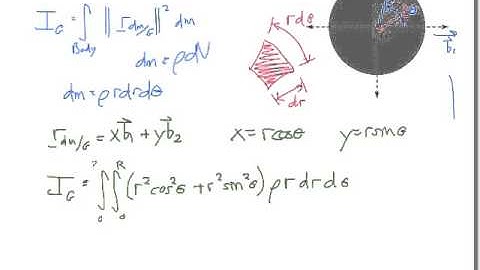 I_G = ∫_Body ‖ r_dm/G ‖² dm
dm = ρdV
dm = ρrdrdθ
rdθ
dr
b₁
r_dm/G = xb₁ + yb₂   x = rcosθ   y = rsinθ
I_G = ∫₀^? ∫₀^R (r²cos²θ + r²sin²θ) ρrdrdθ